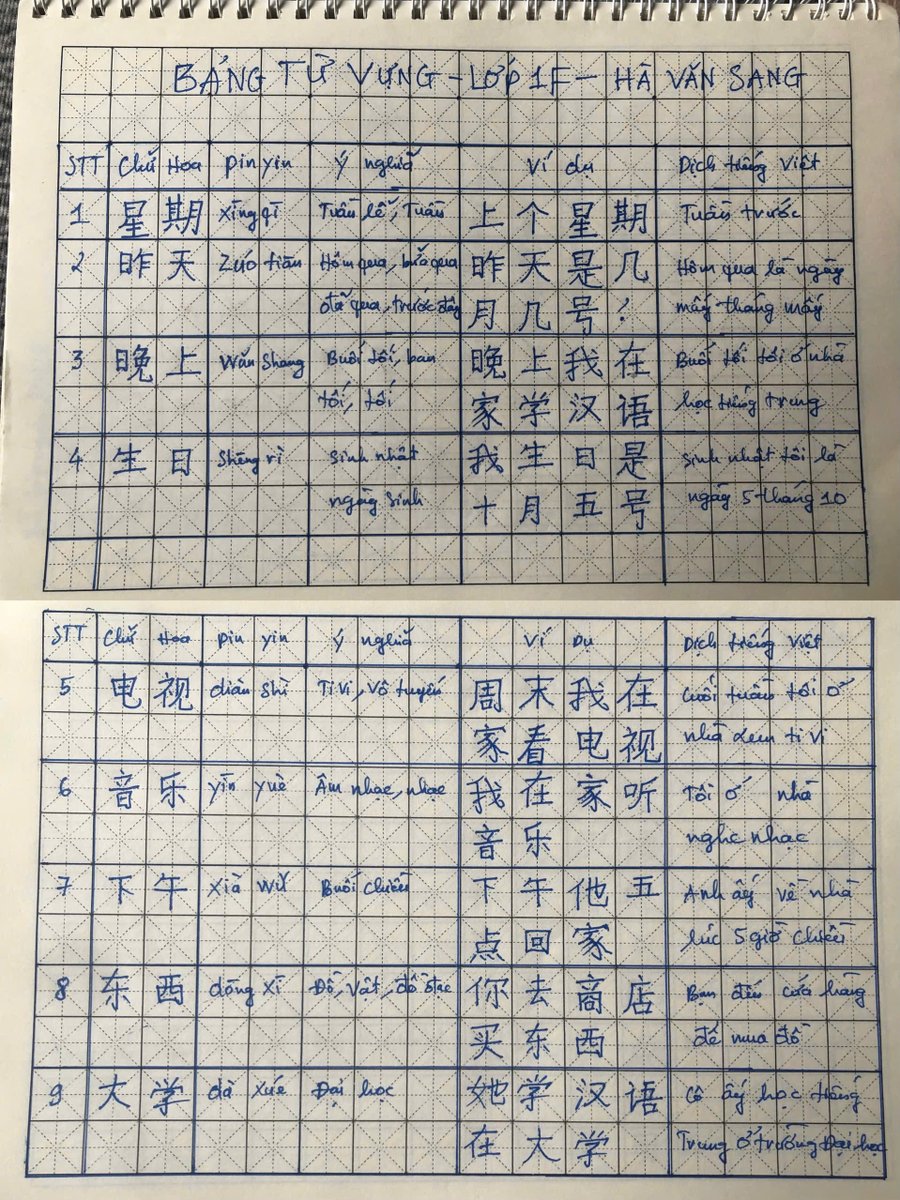 BẢNG TỪ VỰNG - LỚP 1F - HÀ VĂN SANG
STT Chữ Hoa Pin yin Ý nghĩa Ví dụ Dịch tiếng Việt
1 星期 Xīng qī Tuần lễ, Tuần 上个星期 Tuần trước
2 昨天 Zuó tiān Hôm qua, bữa qua 昨天是几 Hôm qua là ngày
đã qua, trước đây 月几号? mấy tháng mấy
3 晚上 Wǎn Shang Buổi tối, ban 晚上我在 Buổi tối tôi ở nhà
tối, tối 家学汉语 học tiếng trung
4 生日 Shēng rì Sinh nhật 我生日是 Sinh nhật tôi là
ngày sinh 十月五号 ngày 5 tháng 10
STT Chữ Hoa Pin yin Ý nghĩa Ví Dụ Dịch tiếng Việt
5 电视 diàn shì Ti vi, vô tuyến 周末我在 Cuối tuần tôi ở
家看电视 nhà xem ti vi
6 音乐 yīn yuè Âm nhạc, nhạc 我在家听 Tôi ở nhà
音乐 nghe nhạc
7 下午 Xià wǔ Buổi chiều 下午他五 Anh ấy về nhà
点回家 lúc 5 giờ chiều
8 东西 dōng xī Đồ, vật, đồ đạc 你去商店 Bạn đến cửa hàng
买东西 để mua đồ
9 大学 dà xué Đại học 她学汉语 Cô ấy học tiếng
在大学 Trung ở trường Đại học